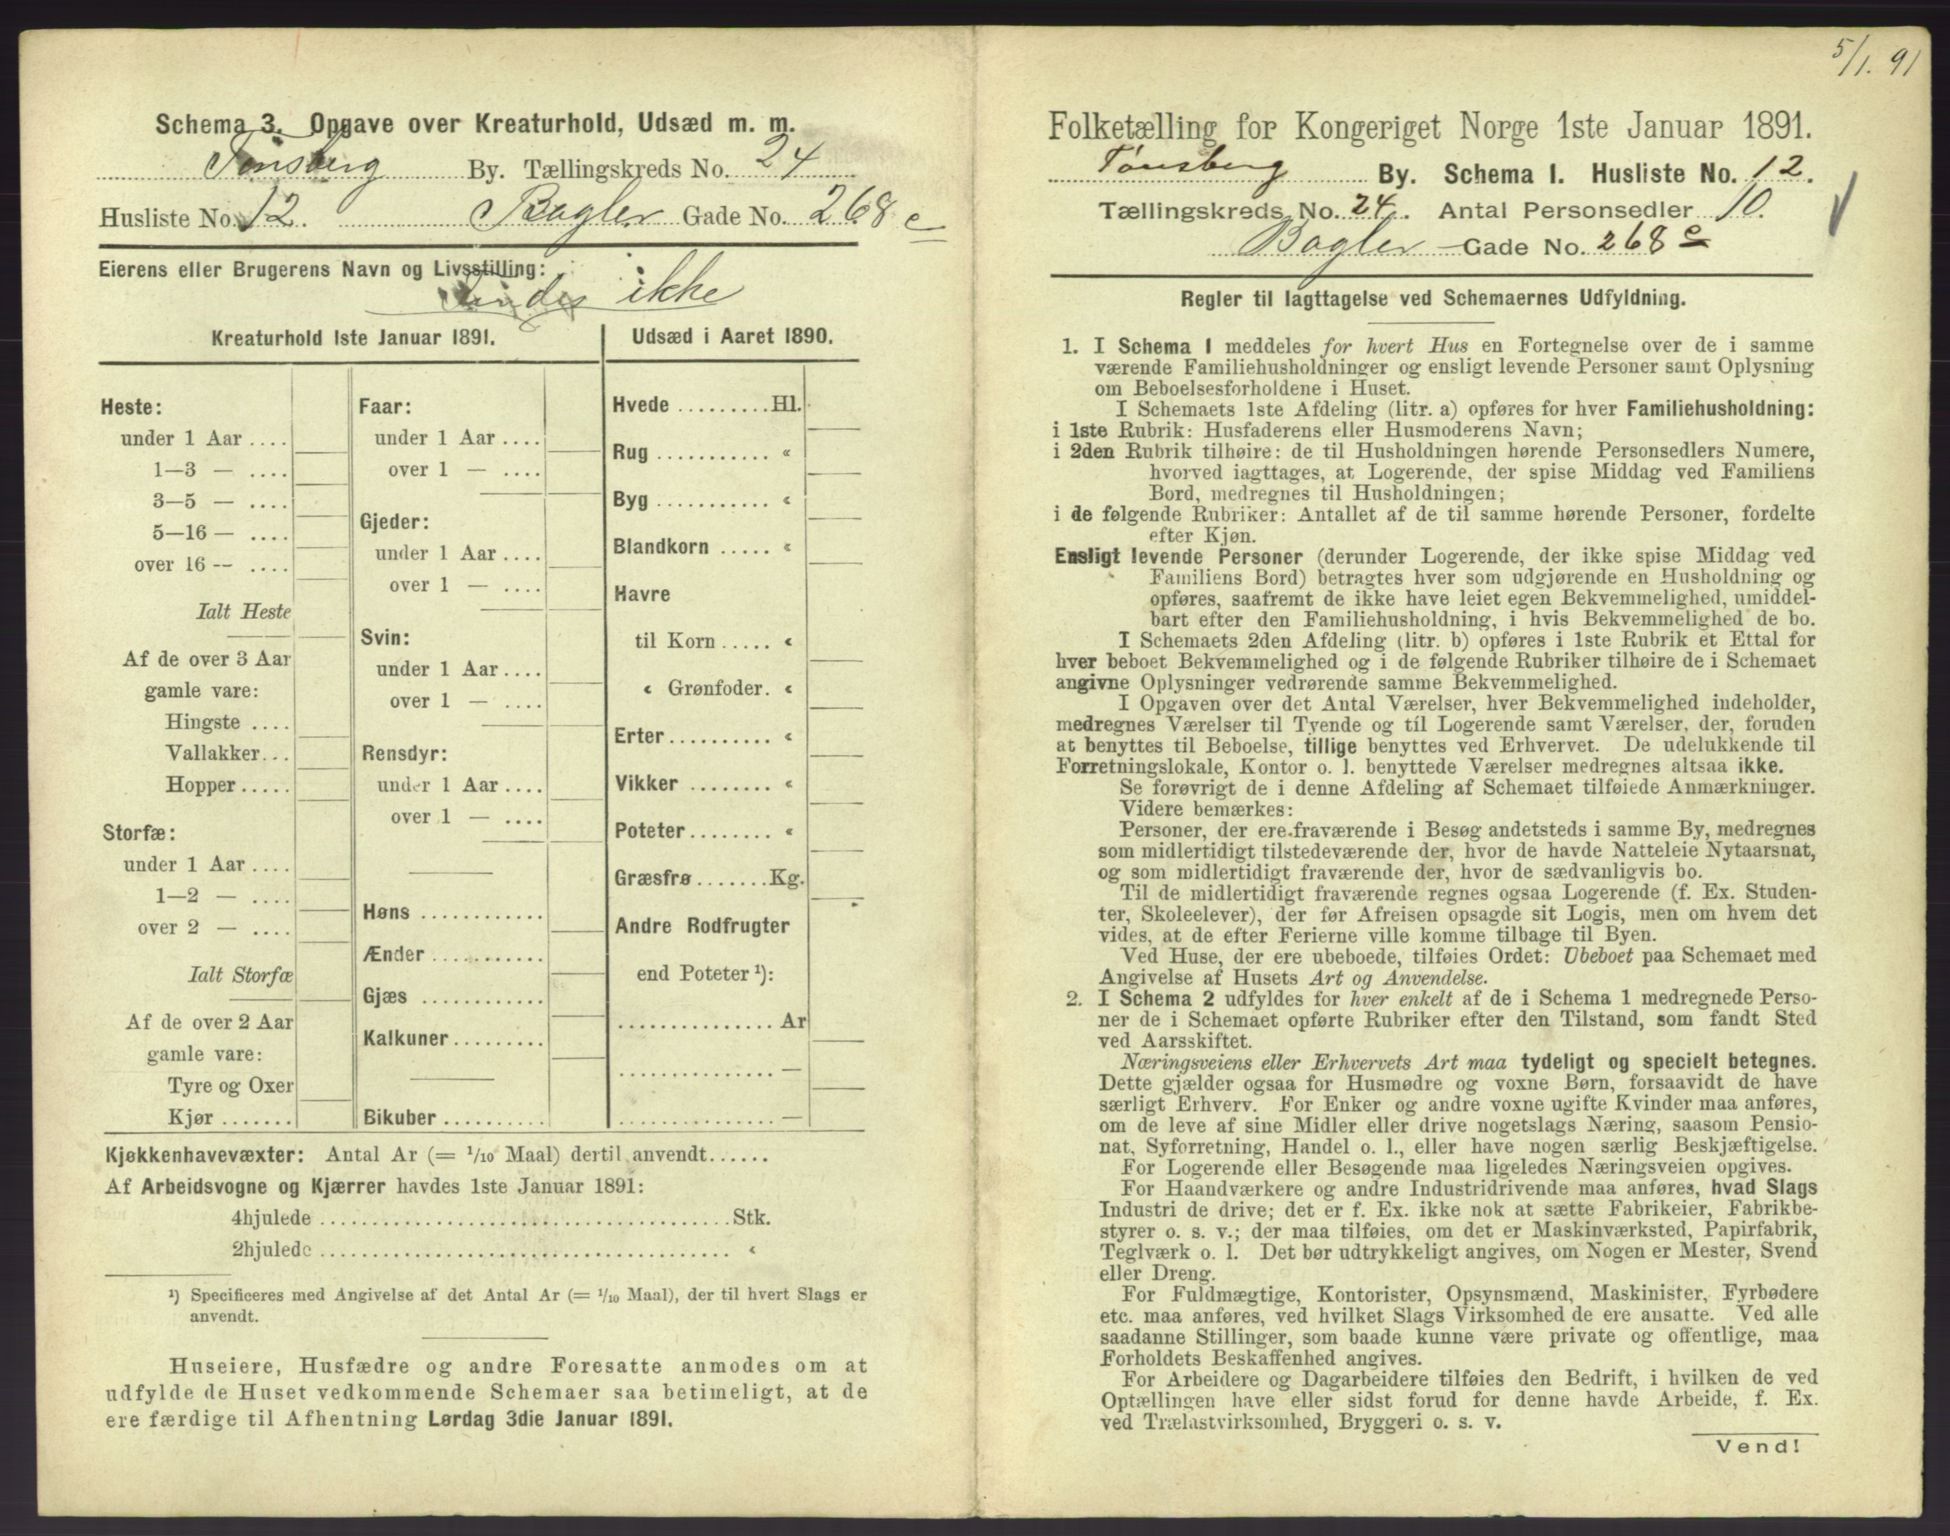 Schema 3. Opgave over Kreaturhold, Udsæd m. m.
Tønsberg By. Tællingskreds No. 24
Husliste No. 12. Bagler Gade No. 268 c
Eierens eller Brugerens Navn og Livsstilling:
Findes ikke
Kreaturhold 1ste Januar 1891.
Heste:
under 1 Aar ....
1—3 — ....
3—5 — ....
5—16 — ....
over 16 — ....
Ialt Heste
Af de over 3 Aar
gamle vare:
Hingste ....
Vallakker...
Hopper.....
Storfæ:
under 1 Aar ....
1—2 — ....
over 2 — ....
Ialt Storfæ
Af de over 2 Aar
gamle vare:
Tyre og Oxer
Kjør .......
Faar:
under 1 Aar ....
over 1 — ....
Gjeder:
under 1 Aar ....
over 1 — ....
Svin:
under 1 Aar ....
over 1 — ....
Rensdyr:
under 1 Aar ....
over 1 — ....
Høns ............
Ænder ...........
Gjæs ............
Kalkuner.........
Bikuber ..........
Udsæd i Aaret 1890.
Hvede .........Hl.
Rug ........... «
Byg ........... «
Blandkorn ..... «
Havre
til Korn ..... «
« Grønfoder. «
Erter.......... «
Vikker ........ «
Poteter........ «
Græsfrø .......Kg.
Andre Rodfrugter
end Poteter ¹):
............... Ar
............... —
............... —
Kjøkkenhavevæxter: Antal Ar (= 1/10 Maal) dertil anvendt......
Af Arbeidsvogne og Kjærrer havdes 1ste Januar 1891:
4hjulede ........................................Stk.
2hjulede ........................................ «
¹) Specificeres med Angivelse af det Antal Ar (= 1/10 Maal), der til hvert Slags er
anvendt.
Huseiere, Husfædre og andre Foresatte anmodes om at
udfylde de Huset vedkommende Schemaer saa betimeligt, at de
ere færdige til Afhentning Lørdag 3die Januar 1891.
5/1. 91
Folketælling for Kongeriget Norge 1ste Januar 1891.
Tønsberg By. Schema 1. Husliste No. 12.
Tællingskreds No. 24. Antal Personsedler 10.
Bagler Gade No. 268 c
Regler til Iagttagelse ved Schemaernes Udfyldning.
1. I Schema 1 meddeles for hvert Hus en Fortegnelse over de i samme
værende Familiehusholdninger og ensligt levende Personer samt Oplysning
om Beboelsesforholdene i Huset.
I Schemaets 1ste Afdeling (litr. a) opføres for hver Familiehusholdning:
i 1ste Rubrik: Husfaderens eller Husmoderens Navn;
i 2den Rubrik tilhøire: de til Husholdningen hørende Personsedlers Numere,
hvorved iagttages, at Logerende, der spise Middag ved Familiens
Bord, medregnes til Husholdningen;
i de følgende Rubriker: Antallet af de til samme hørende Personer, fordelte
efter Kjøn.
Ensligt levende Personer (derunder Logerende, der ikke spise Middag ved
Familiens Bord) betragtes hver som udgjørende en Husholdning og
opføres, saafremt de ikke have leiet egen Bekvemmelighed, umiddel-
bart efter den Familiehusholdning, i hvis Bekvemmelighed de bo.
I Schemaets 2den Afdeling (litr. b) opføres i 1ste Rubrik et Ettal for
hver beboet Bekvemmelighed og i de følgende Rubriker tilhøire de i Schemaet
angivne Oplysninger vedrørende samme Bekvemmelighed.
I Opgaven over det Antal Værelser, hver Bekvemmelighed indeholder,
medregnes Værelser til Tyende og til Logerende samt Værelser, der, foruden
at benyttes til Beboelse, tillige benyttes ved Erhvervet. De udelukkende til
Forretningslokale, Kontor o. l. benyttede Værelser medregnes altsaa ikke.
Se forøvrigt de i denne Afdeling af Schemaet tilføiede Anmærkninger.
Videre bemærkes:
Personer, der ere fraværende i Besøg andetsteds i samme By, medregnes
som midlertidigt tilstedeværende der, hvor de havde Natteleie Nytaarsnat,
og som midlertidigt fraværende der, hvor de sædvanligvis bo.
Til de midlertidigt fraværende regnes ogsaa Logerende (f. Ex. Studen-
ter, Skoleelever), der før Afreisen opsagde sit Logis, men om hvem det
vides, at de efter Ferierne ville komme tilbage til Byen.
Ved Huse, der ere ubeboede, tilføies Ordet: Ubeboet paa Schemaet med
Angivelse af Husets Art og Anvendelse.
2. I Schema 2 udfyldes for hver enkelt af de i Schema 1 medregnede Perso-
ner de i Schemaet opførte Rubriker efter den Tilstand, som fandt Sted
ved Aarsskiftet.
Næringsveiens eller Erhvervets Art maa tydeligt og specielt betegnes.
Dette gjælder ogsaa for Husmødre og voxne Børn, forsaavidt de have
særligt Erhverv. For Enker og andre voxne ugifte Kvinder maa anføres,
om de leve af sine Midler eller drive nogetslags Næring, saasom Pensio-
nat, Syforretning, Handel o. l., eller have nogen særlig Beskjæftigelse.
For Logerende eller Besøgende maa ligeledes Næringsveien opgives.
For Haandværkere og andre Industridrivende maa anføres, hvad Slags
Industri de drive; det er f. Ex. ikke nok at sætte Fabrikeier, Fabrikbe-
styrer o. s. v.; der maa tilføies, om det er Maskinværksted, Papirfabrik,
Teglværk o. l. Det bør udtrykkeligt angives, om Nogen er Mester, Svend
eller Dreng.
For Fuldmægtige, Kontorister, Opsynsmænd, Maskinister, Fyrbødere
etc. maa anføres, ved hvilket Slags Virksomhed de ere ansatte. Ved alle
saadanne Stillinger, som baade kunne være private og offentlige, maa
Forholdets Beskaffenhed angives.
For Arbeidere og Dagarbeidere tilføies den Bedrift, i hvilken de ved
Optællingen have eller sidst forud for denne havde Arbeide, f. Ex.
ved Trælastvirksomhed, Bryggeri o. s. v.
Vend!